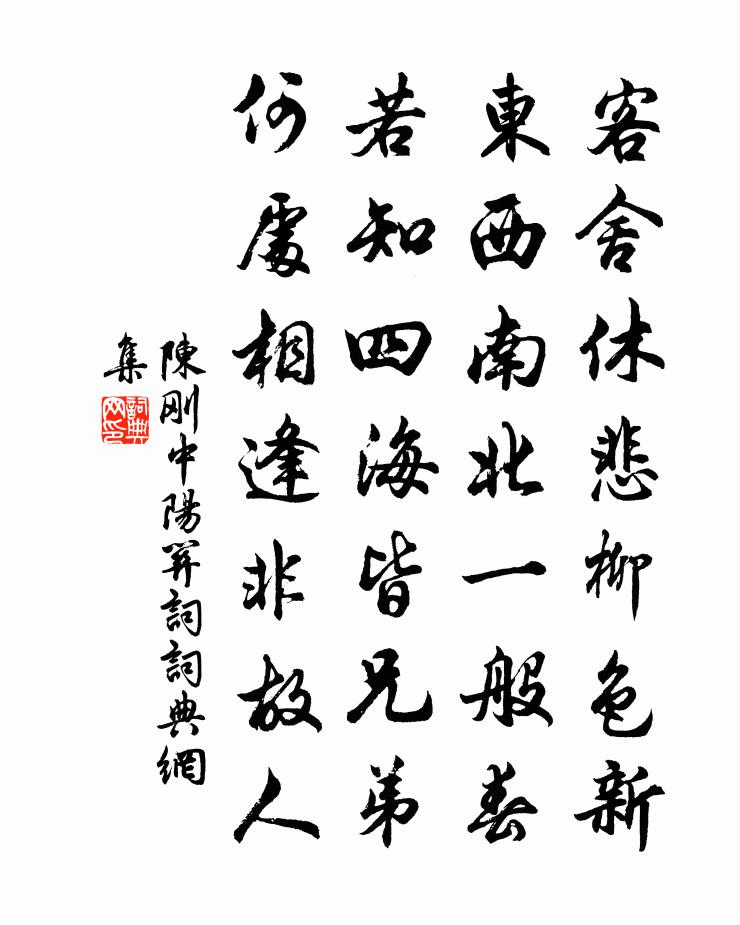 客舍休悲柳色新
東西南北一般春
若知四海皆兄弟
何處相逢非故人
陳剛中陽關詞詞典網
集
詞典
网印